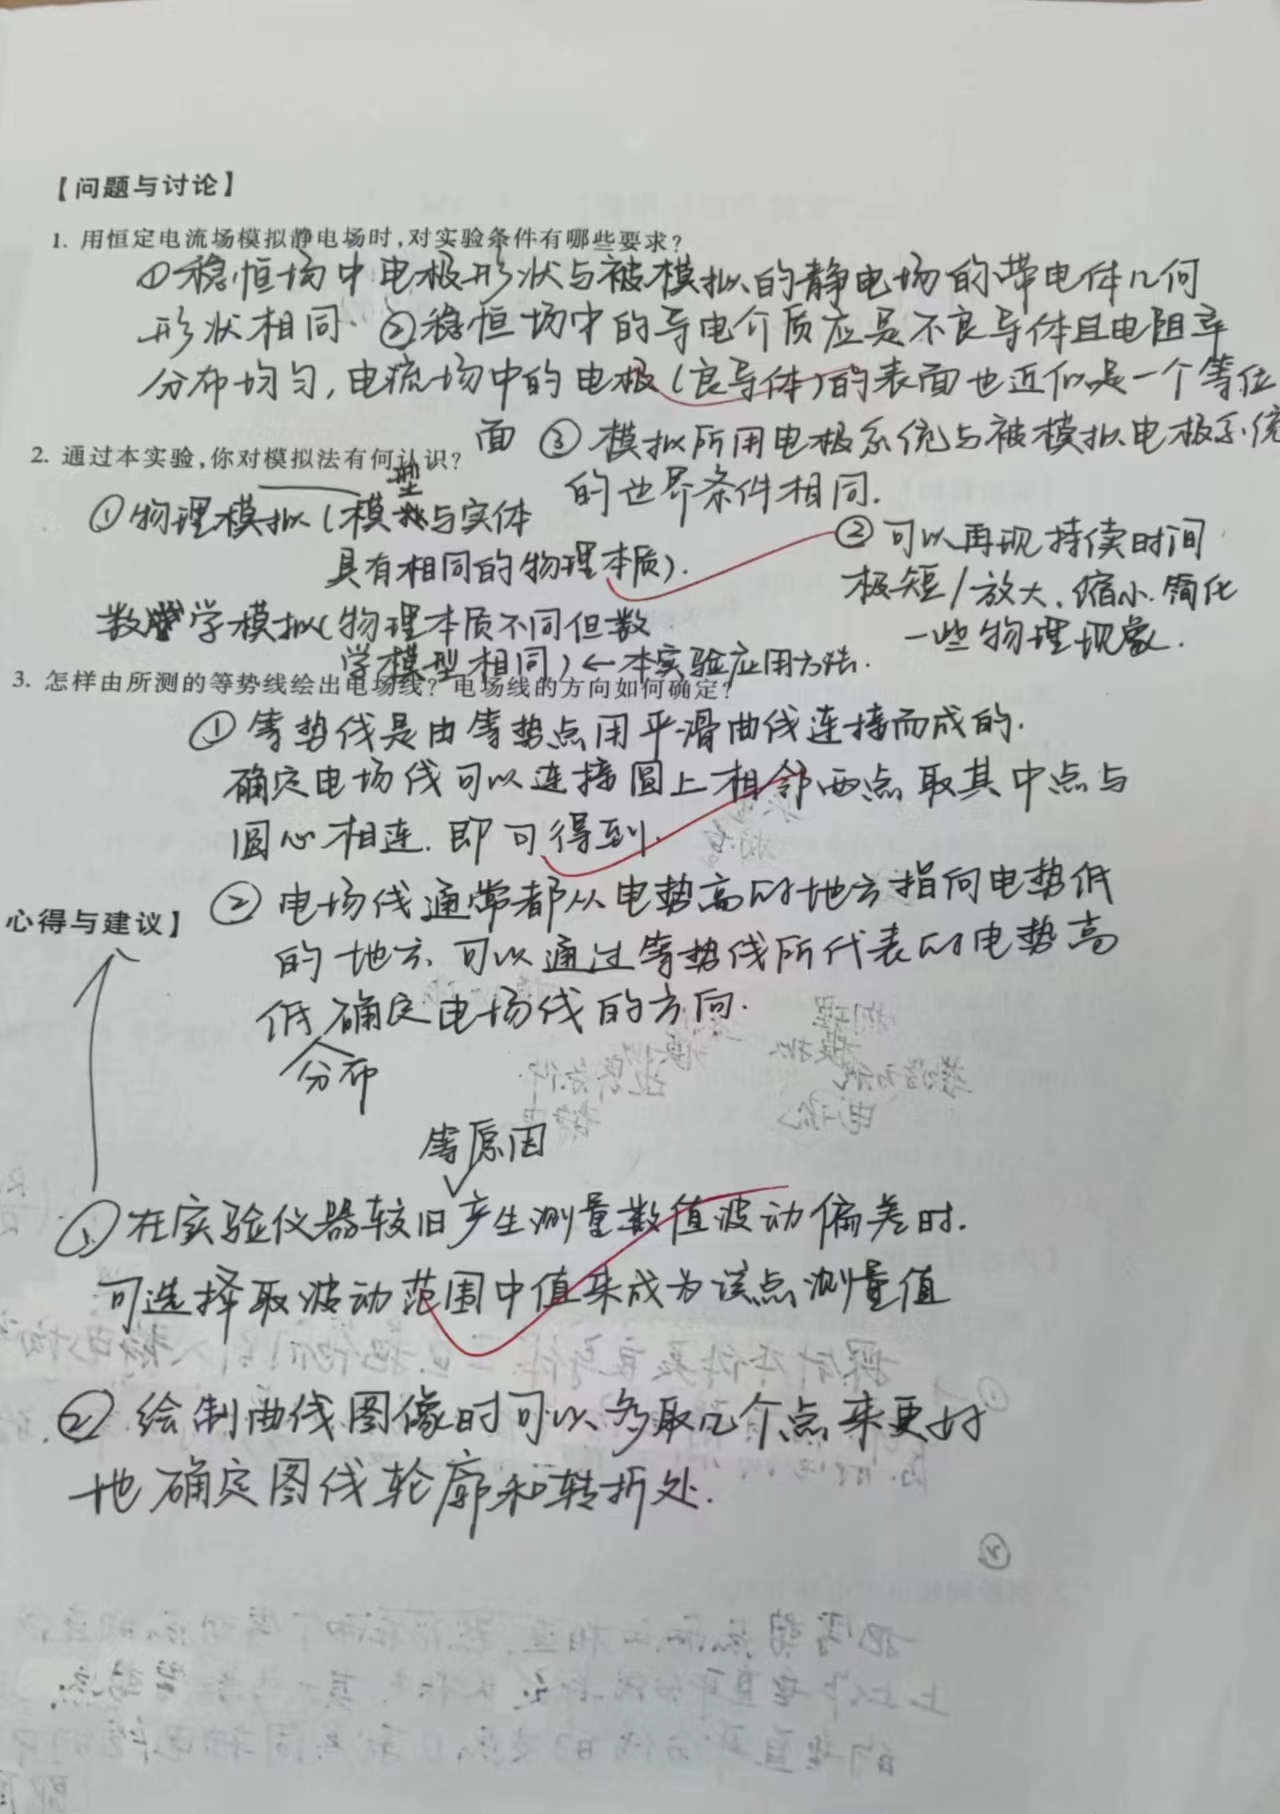 【问题与讨论】
1. 用恒定电流场模拟静电场时,对实验条件有哪些要求?
①稳恒场中电极形状与被模拟的静电场的带电体几何
形状相同. ②稳恒场中的导电介质应是不良导体且电阻率
分布均匀,电流场中的电极(良导体)的表面也近似是一个等位
面 ③模拟所用电极系统与被模拟电极系统
的边界条件相同.
2. 通过本实验,你对模拟法有何认识?
①物理模拟(模型与实体
具有相同的物理本质).
数学模拟(物理本质不同但数
学模型相同)←本实验应用方法.
②可以再现持续时间
极短/放大、缩小.简化
一些物理现象.
3. 怎样由所测的等势线绘出电场线? 电场线的方向如何确定?
①等势线是由等势点用平滑曲线连接而成的.
确定电场线可以连接圆上相邻两点取其中点与
圆心相连.即可得到.
②电场线通常都从电势高的地方指向电势低
的地方.可以通过等势线所代表的电势高
低分布确定电场线的方向.
心得与建议】
①在实验仪器较旧等原因产生测量数值波动偏差时.
可选择取波动范围中值来成为该点测量值
②绘制曲线图像时可以多取几个点来更好
地确定图线轮廓和转折处.